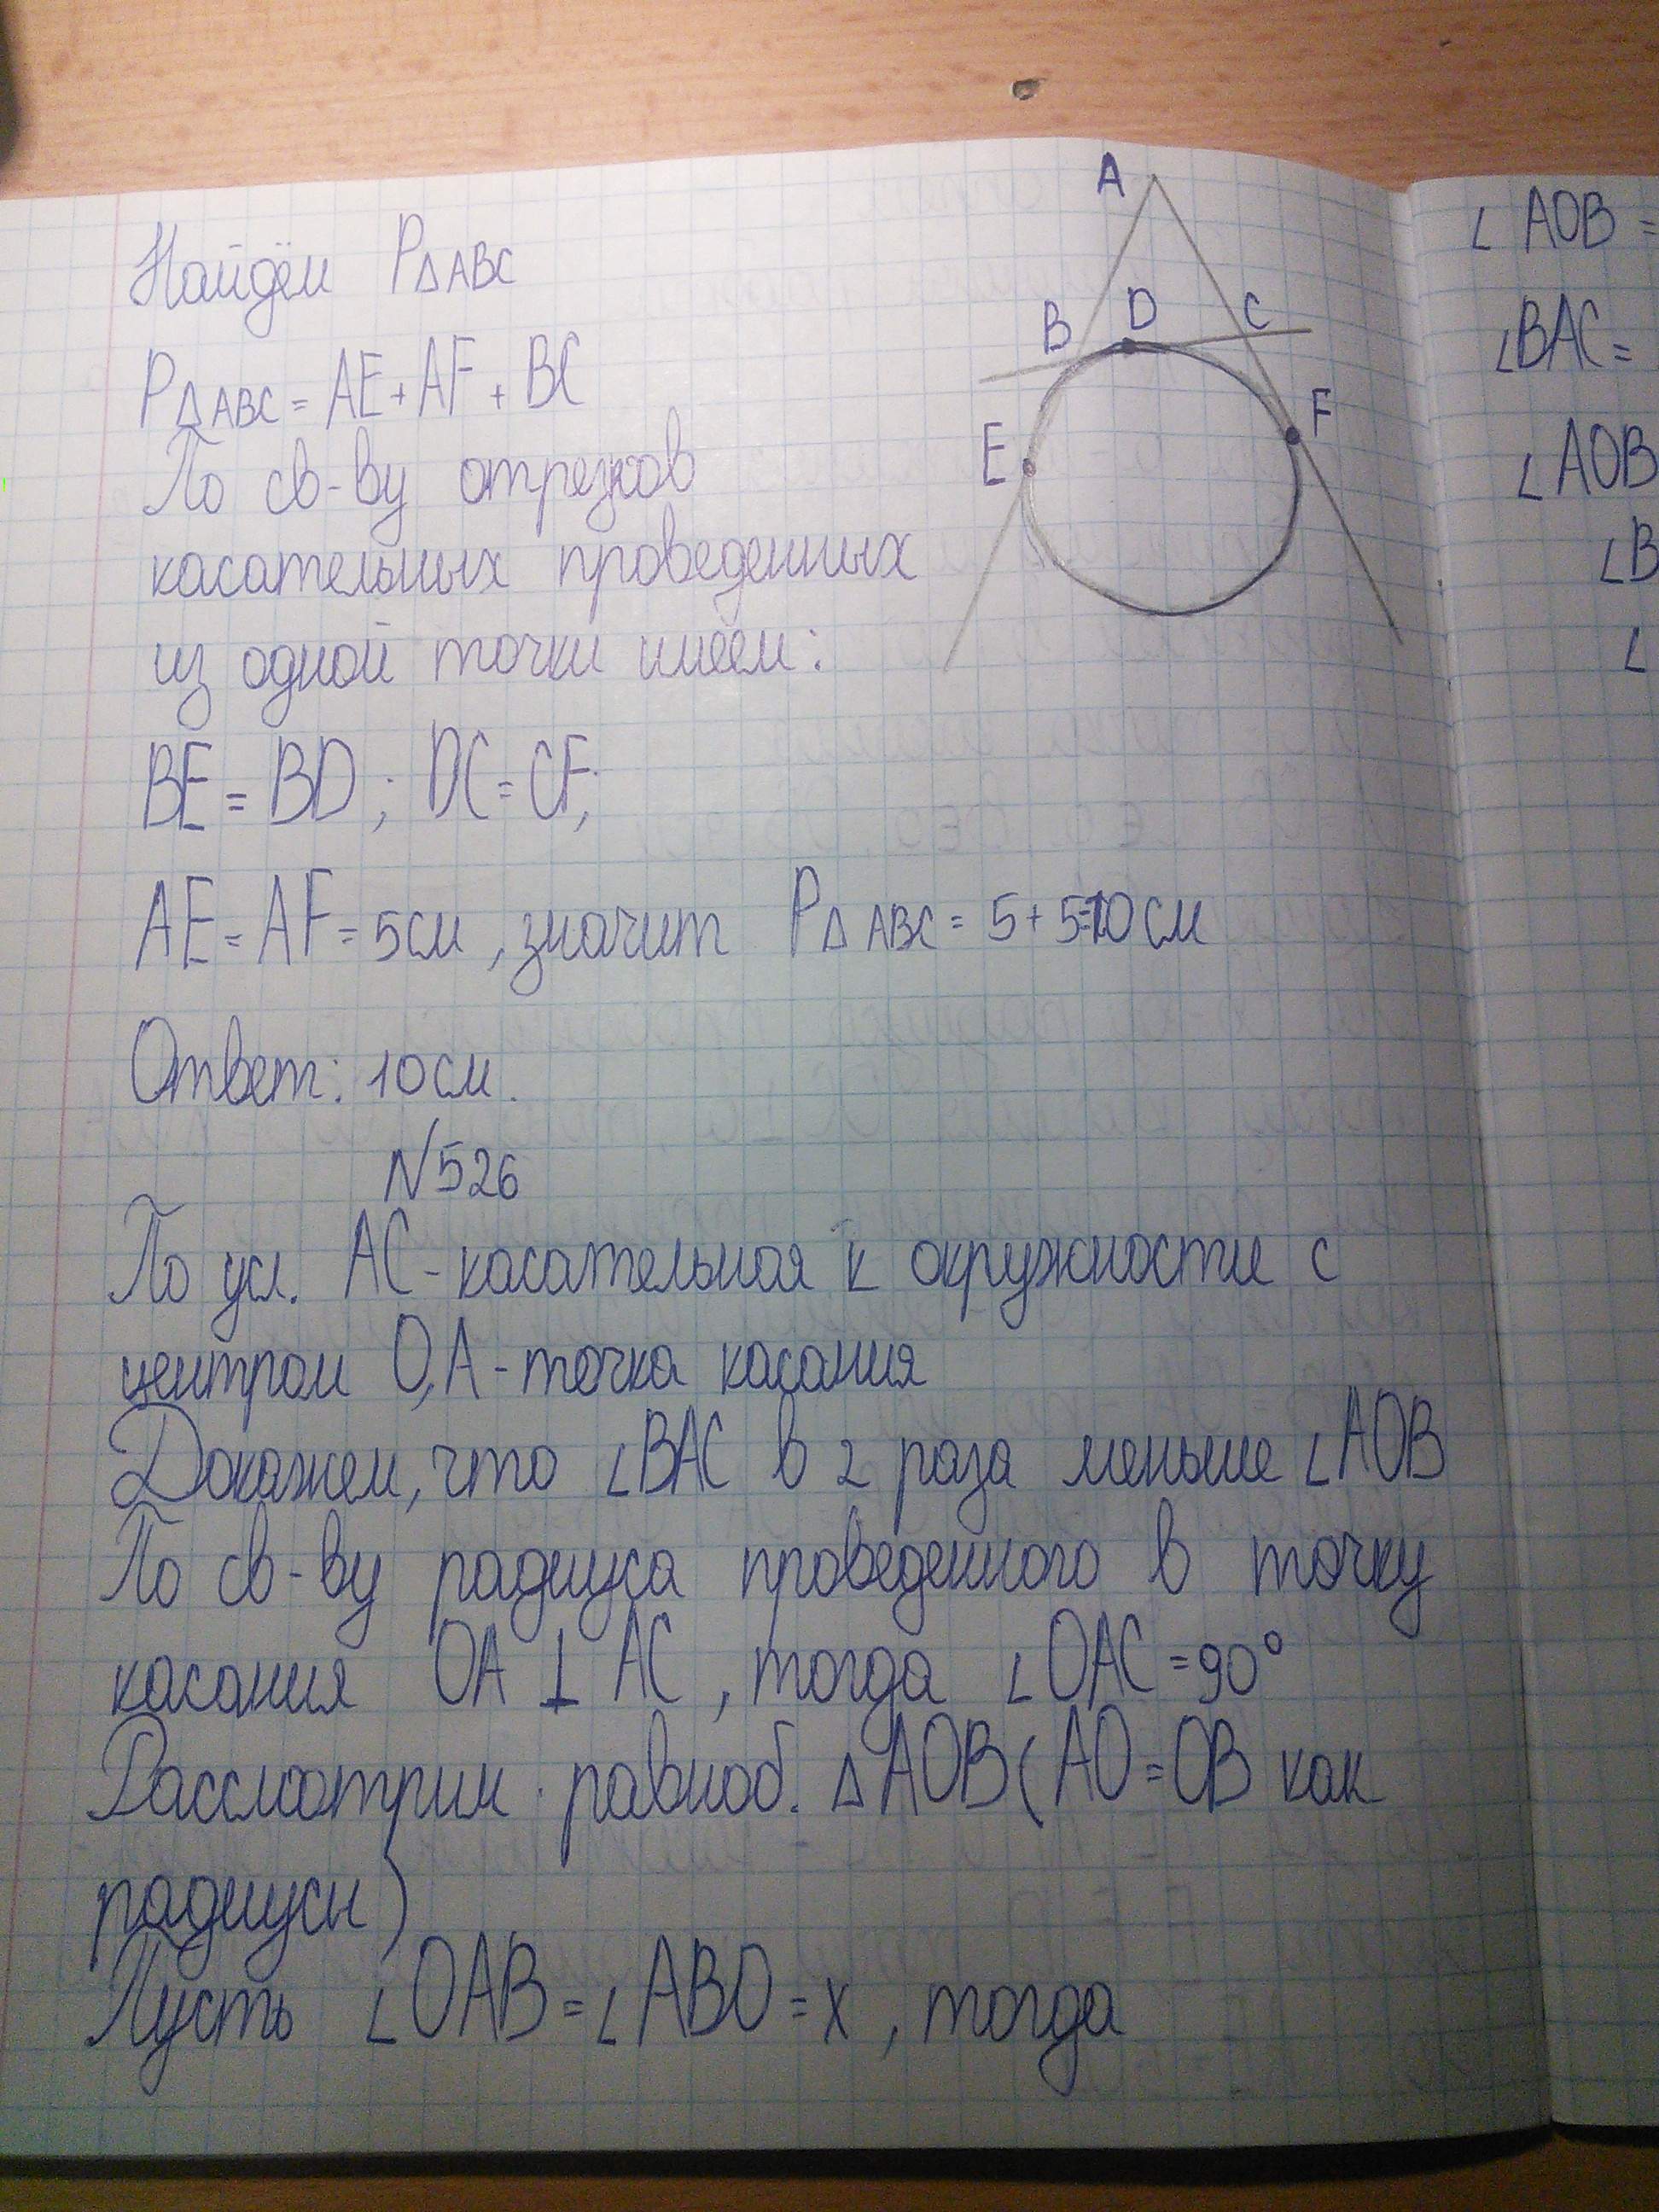 Найдём P△ABC
P△ABC = AE + AF + BC
По св-ву отрезков
касательных проведенных
из одной точки имеем:
BE = BD ; DC = CF;
AE = AF = 5см , значит P△ABC = 5 + 5=10см
Ответ: 10см.
A
B
D
C
E
F
N526
По усл. AC-касательная к окружности с
центром O,A-точка касания
Докажем, что ∠BAC в 2 раза меньше ∠AOB
По св-ву радиуса проведенного в точку
касания OA ⊥ AC , тогда ∠OAC = 90°
Рассмотрим равноб. △AOB (AO = OB как
радиусы)
Пусть ∠OAB = ∠ABO = x , тогда
∠ AOB =
∠BAC =
∠AOB
∠B
∠